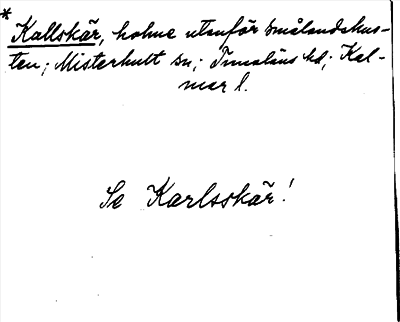 * Kallskär, holme utanför smålandskus-
ten; Misterhult sn; Tunaläns hd; Kal-
mar l.
Se Karlsskär!